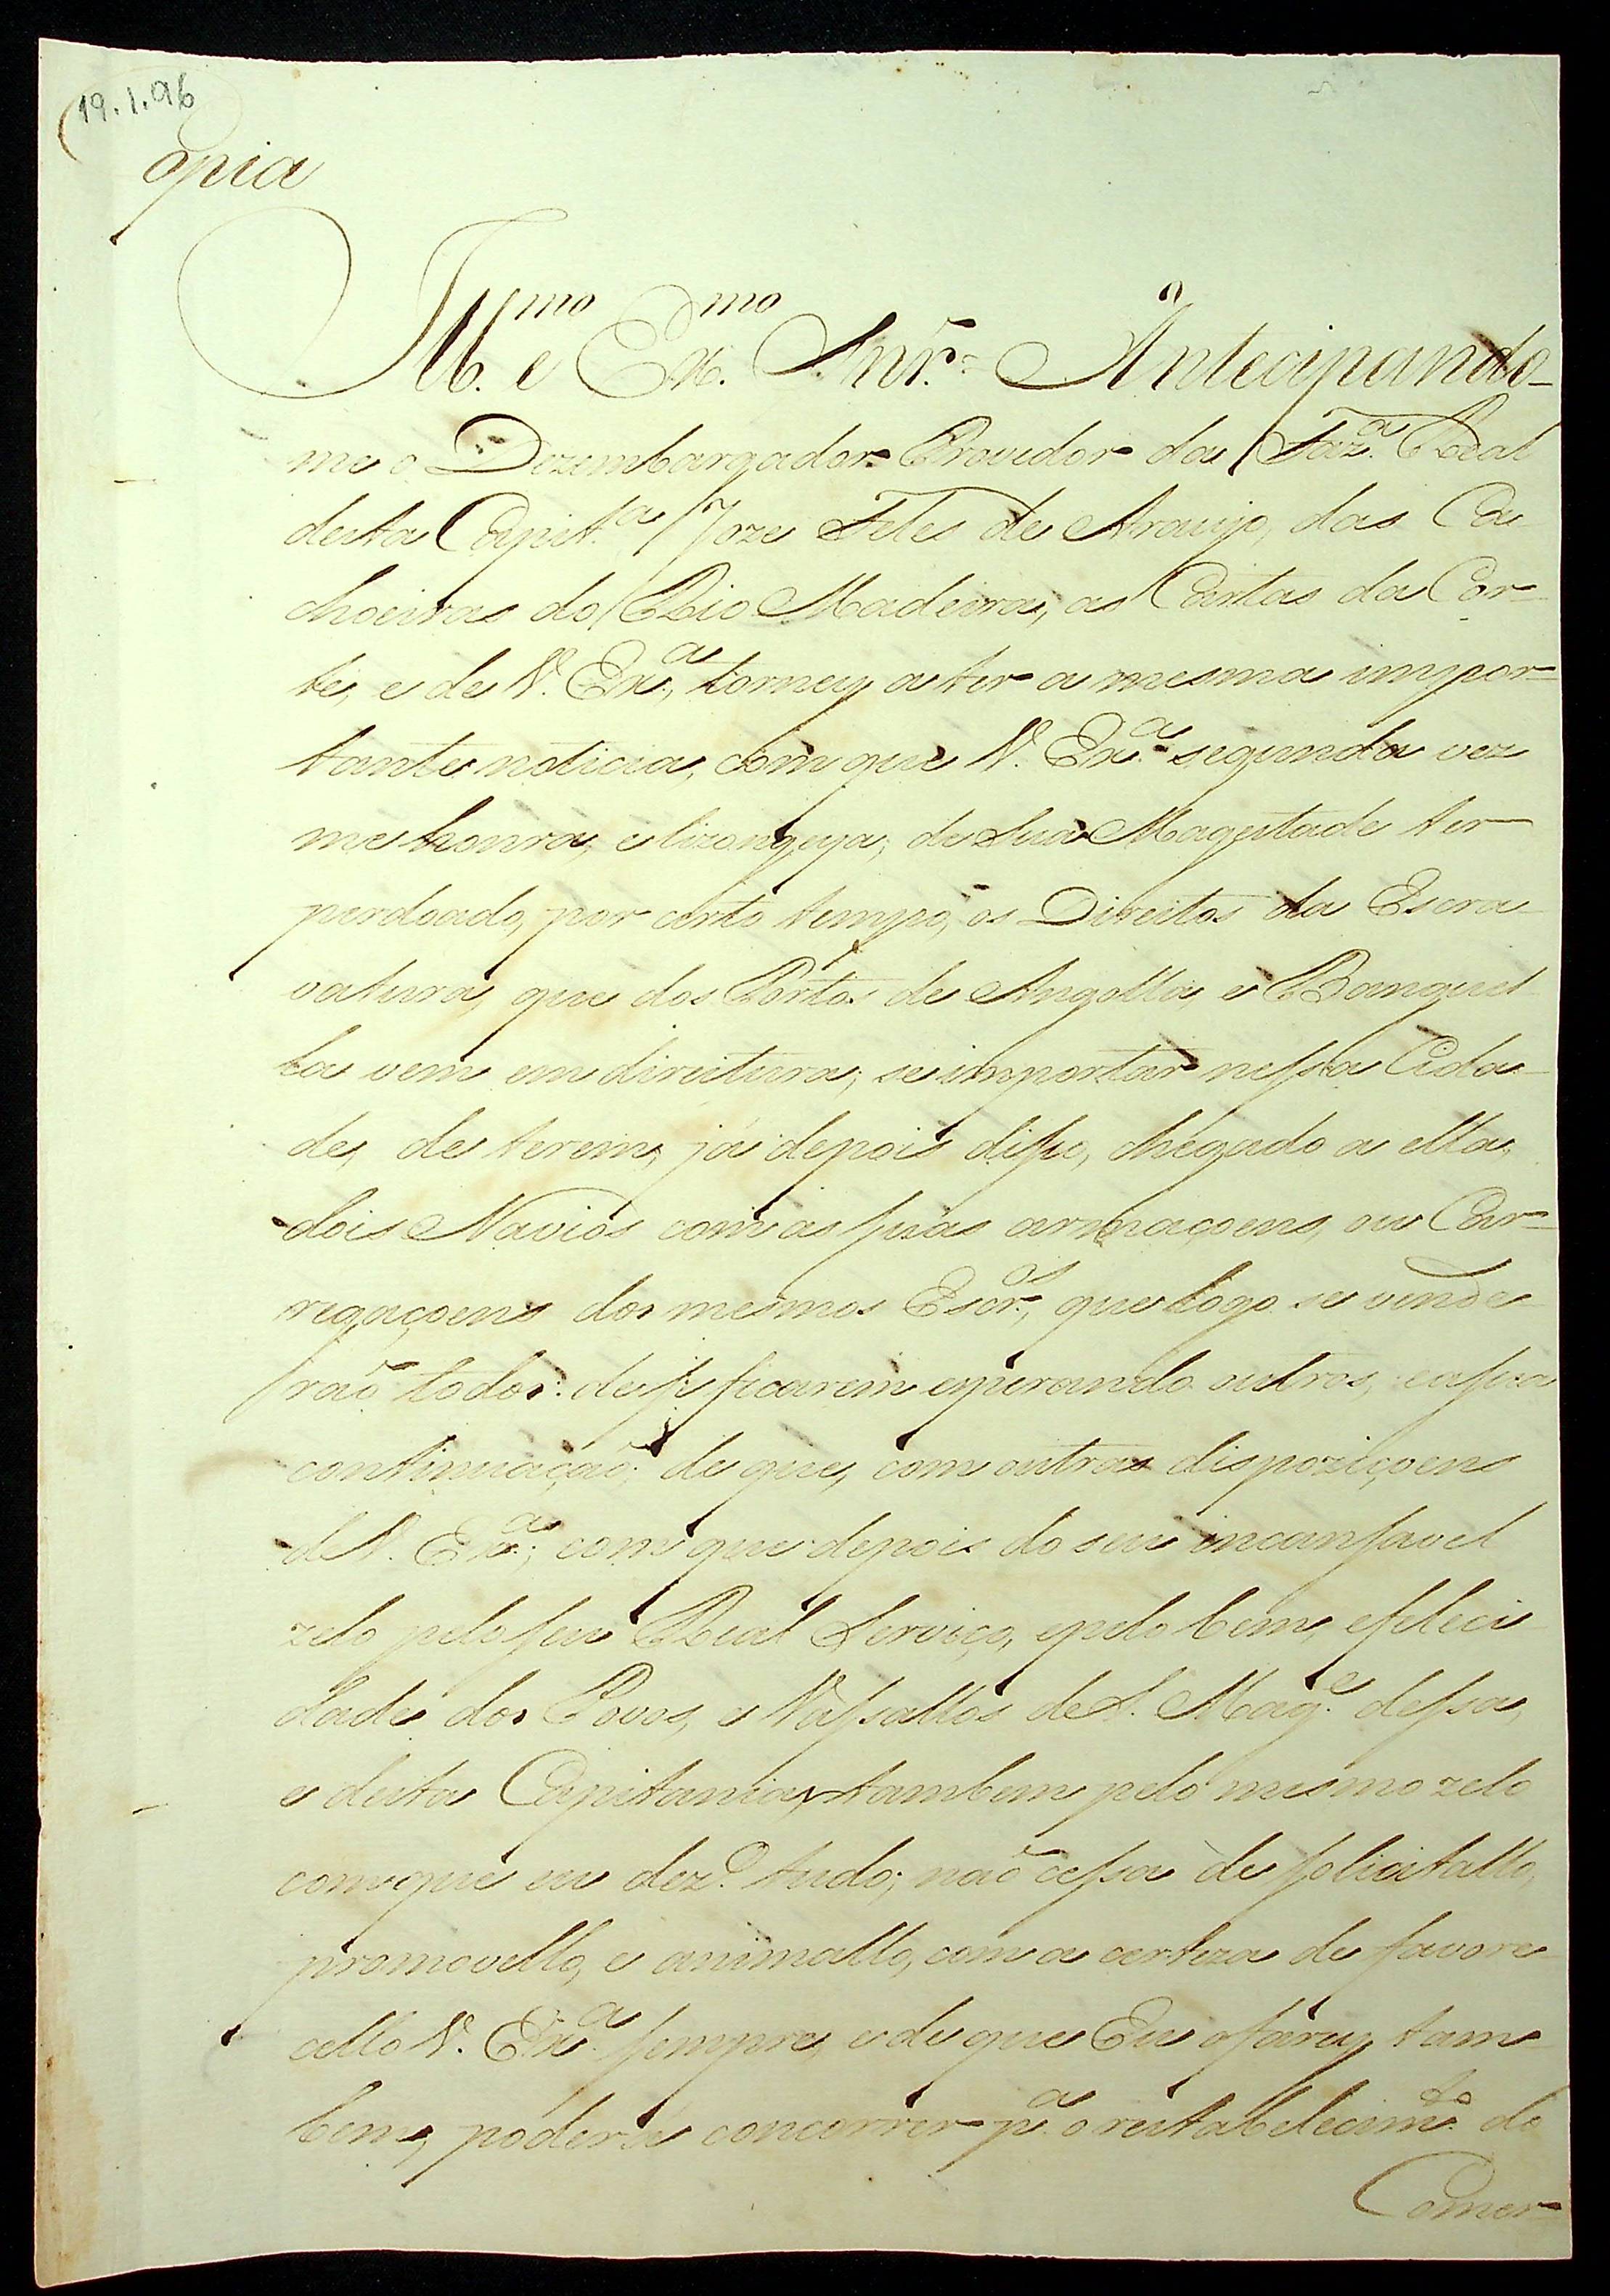 19.1.96
Copia
Ill.mo e Ex.mo Snr.= Antecipando-
me o Dezembargador Provedor da Faz.a Real
desta Capit.a Joze Teles de Araujo, das Ca
choeiras do Rio Madeira, as Cartas da Cor-
te, e de V. Ex.a, torney a ter a mesma impor-
tante noticia, com que V. Ex.a segunda vez
me honra, e lizongeya, de Sua Magestade ter
perdoado, por certo tempo, os Direitos da Escra
vatura, que dos Portos de Angolla, e Banguel
la vem em direitura, se importar nessa Cida
de, de terem, já depois disso, chegado a ella,
dois Navios com as suas armaçoens, ou Car-
regaçoens dos mesmos Escr.os, que logo se vende
raõ todos: de se ficarem esperando outros, e a sua
continuaçaõ; de que, com outras dispoziçoens
de V. Ex.a; com que depois do seu incansavel
zelo pelo seu Real Serviço, e pelo bem, e feleci
dade dos Povos, e Vassallos de S. Mag.e dessa,
e desta Capitania, tambem pelo mesmo zelo
com que eu dez.o tudo; naõ cessa de solicitallo,
promovello, e animallo, com a certeza de favore
cello V. Ex.a sempre, e de que Eu o farey tam
bem, poderá concorrer p.a o restabelecim.to do
Comer-